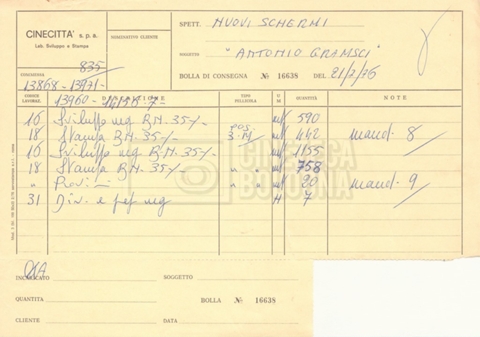 CINECITTA' s.p.a.
Lab. Sviluppo e Stampa
NOMINATIVO CLIENTE
SPETT. NUOVI SCHERMI
SOGGETTO "ANTONIO GRAMSCI"
BOLLA DI CONSEGNA № 16638 DEL 21/7/76
835
13868 - 13971 -
13960 -
CODICE LAVORAZ.
TIPO PELLICOLA
U M
QUANTITÀ
NOTE
16 Sviluppo neg B.N. 35 mt 590
18 Stampa B.N. 35 POS 3 M mt 442 mand. 8
16 Sviluppo neg B.N. 35 mt 1155
18 Stampa B.N. 35 " " mt 758
" Provini " " mt 20 mand. 9
31 Div. e neg H 7
CINETECA
BOLOGNA
INCARICATO
SOGGETTO
QUANTITA
BOLLA № 16638
CLIENTE
DATA